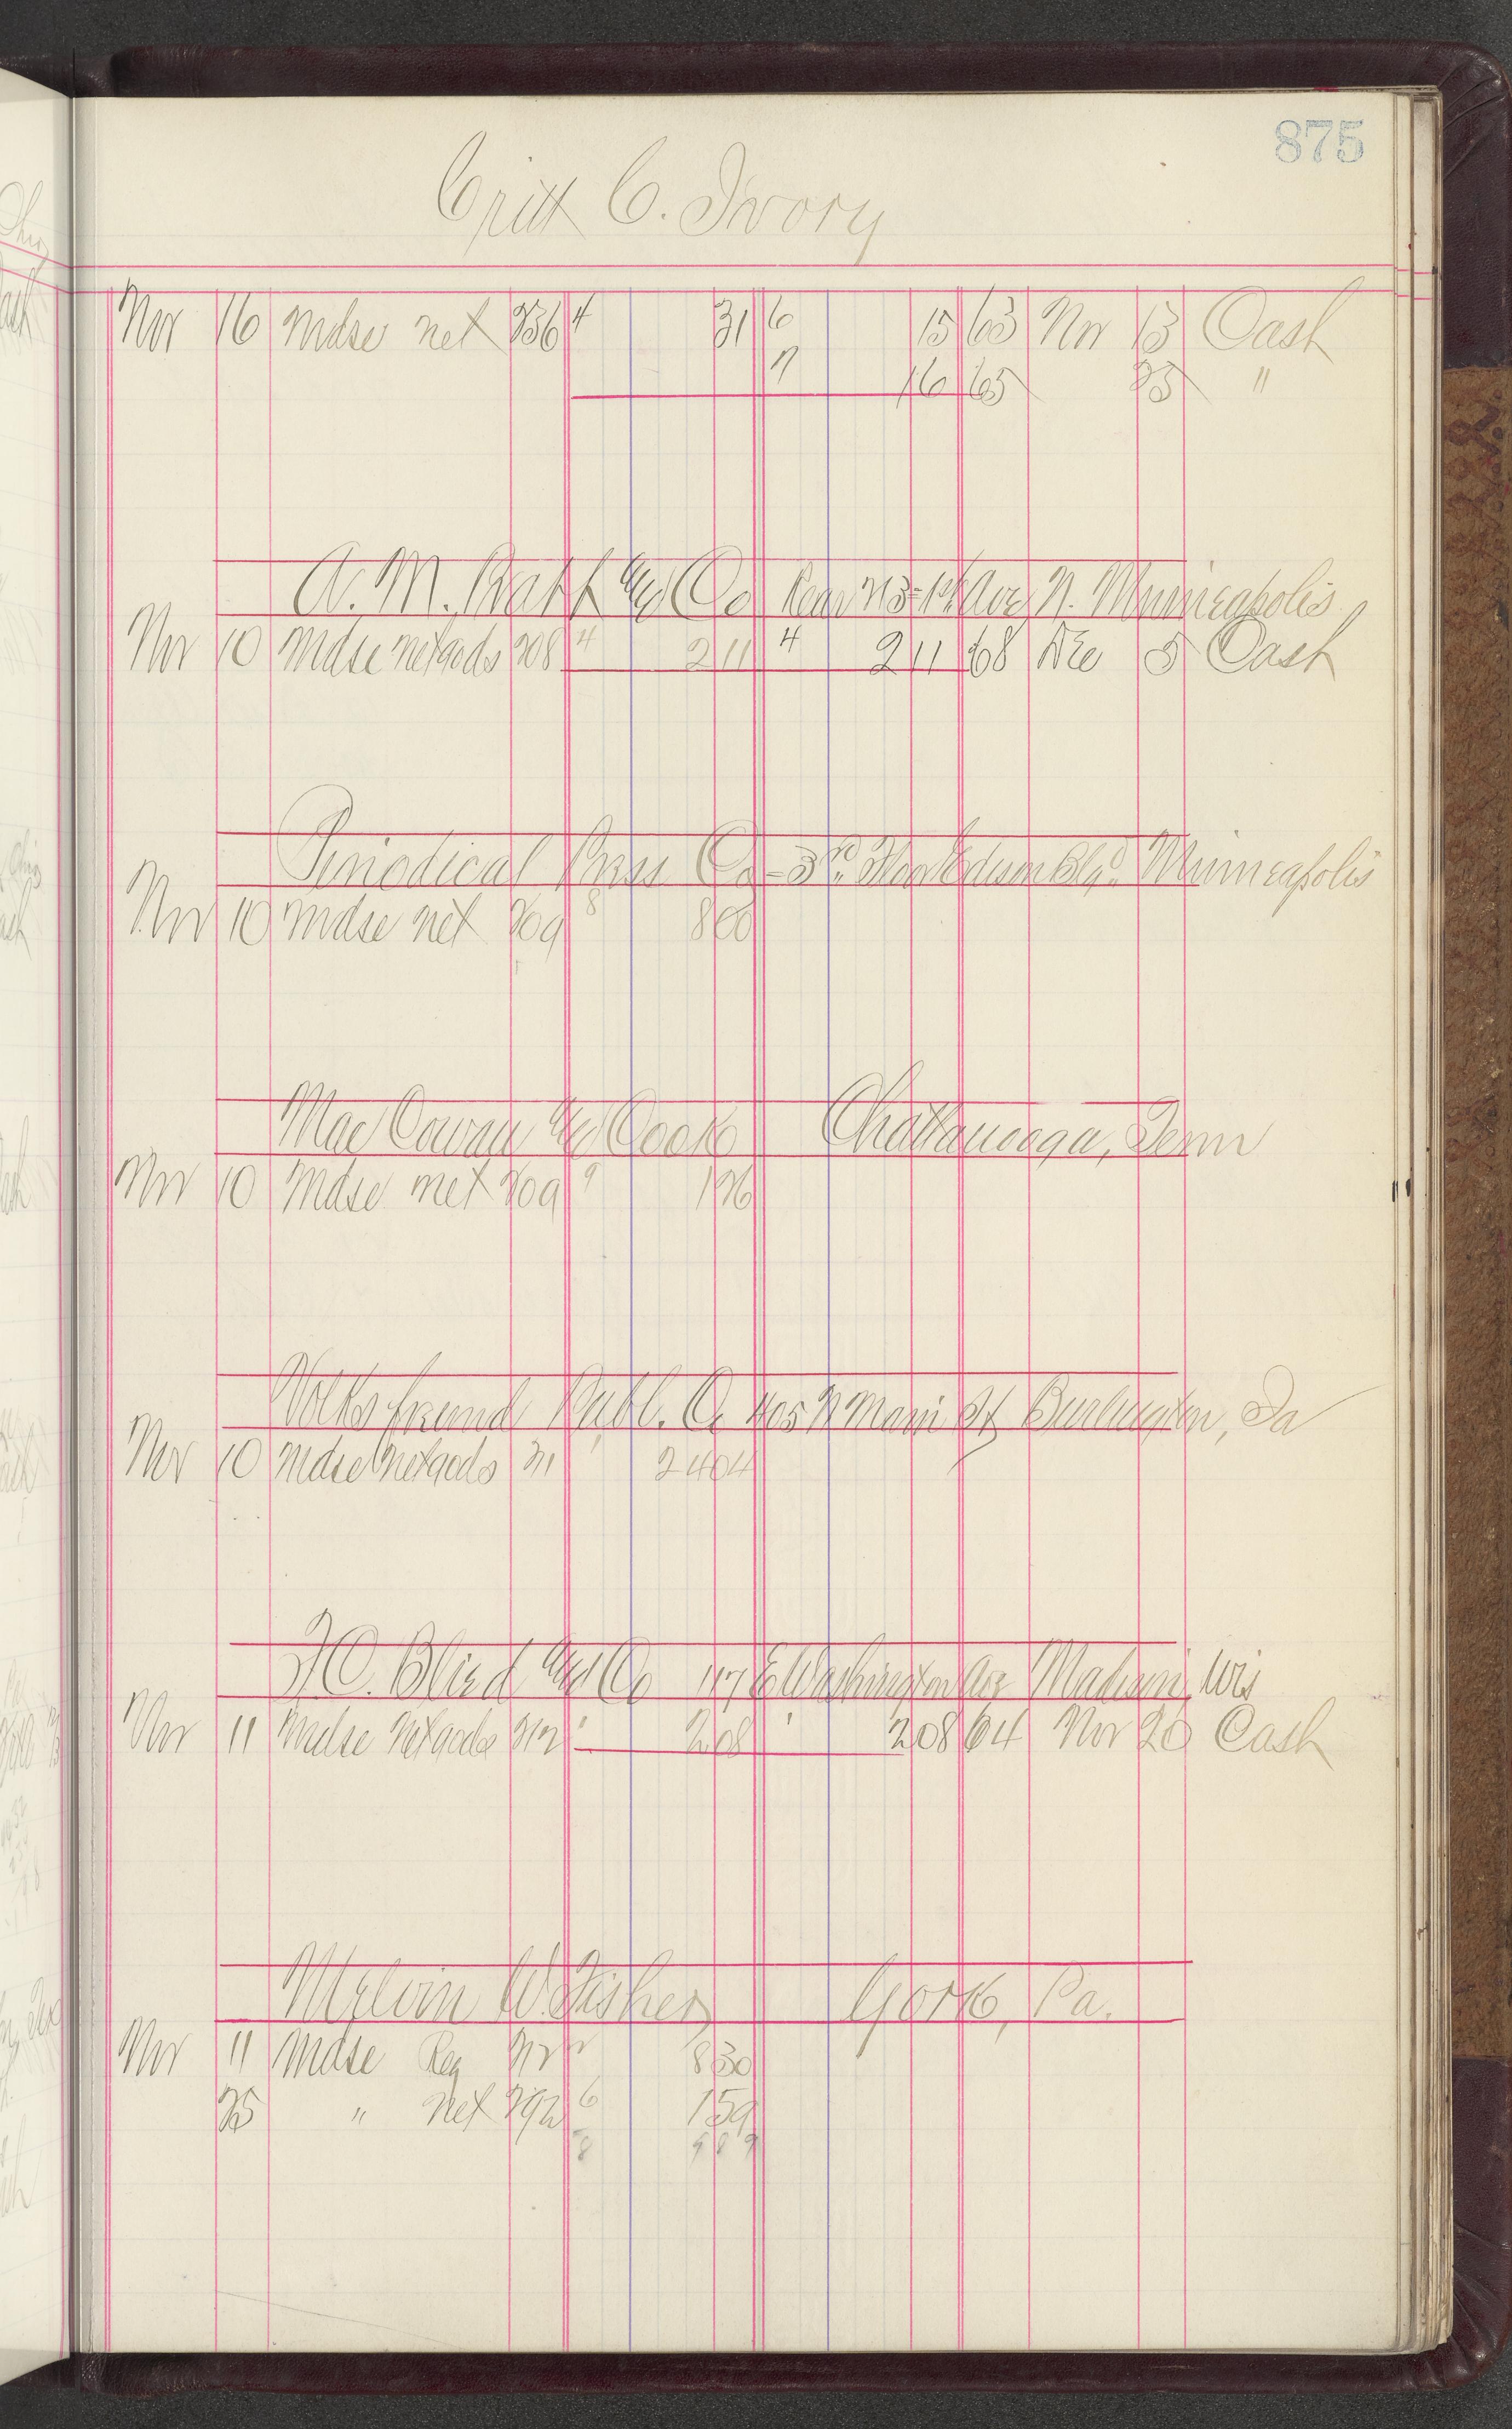 875
Critt C. Ivory
Nov 16 Mdse net 256 4 31 6 15 63 Nov 13 Cash
7 16 65 25 "
A. M. and Co Rear 213-1st Ave N. Minneapolis
Nov 10 Mdse net gods 208 4 2 11 4 2 11 68 Dec 5 Cash
Periodical Press Co - 3rd Floor Edison Bldg. Minneapolis
Nov 10 Mdse net 209 8 8 00
Mac Cowan and Cook Chattanooga, Tenn
Nov 10 Mdse net 209 9 1 26
Volksfreund Publ. Co 405 N Main St Burlington, Ia
Nov 10 Mdse net gods 211 24 04
F. C. Blied and Co 117 E Washington Ave Madison, Wis
Nov 11 Mdse net gods 212 2 08 2 08 64 Nov 20 Cash
Melvin W. Fisher York, Pa.
Nov 11 Mdse Reg 212 8 30
25 " net 292 6 1 59
8 9 89